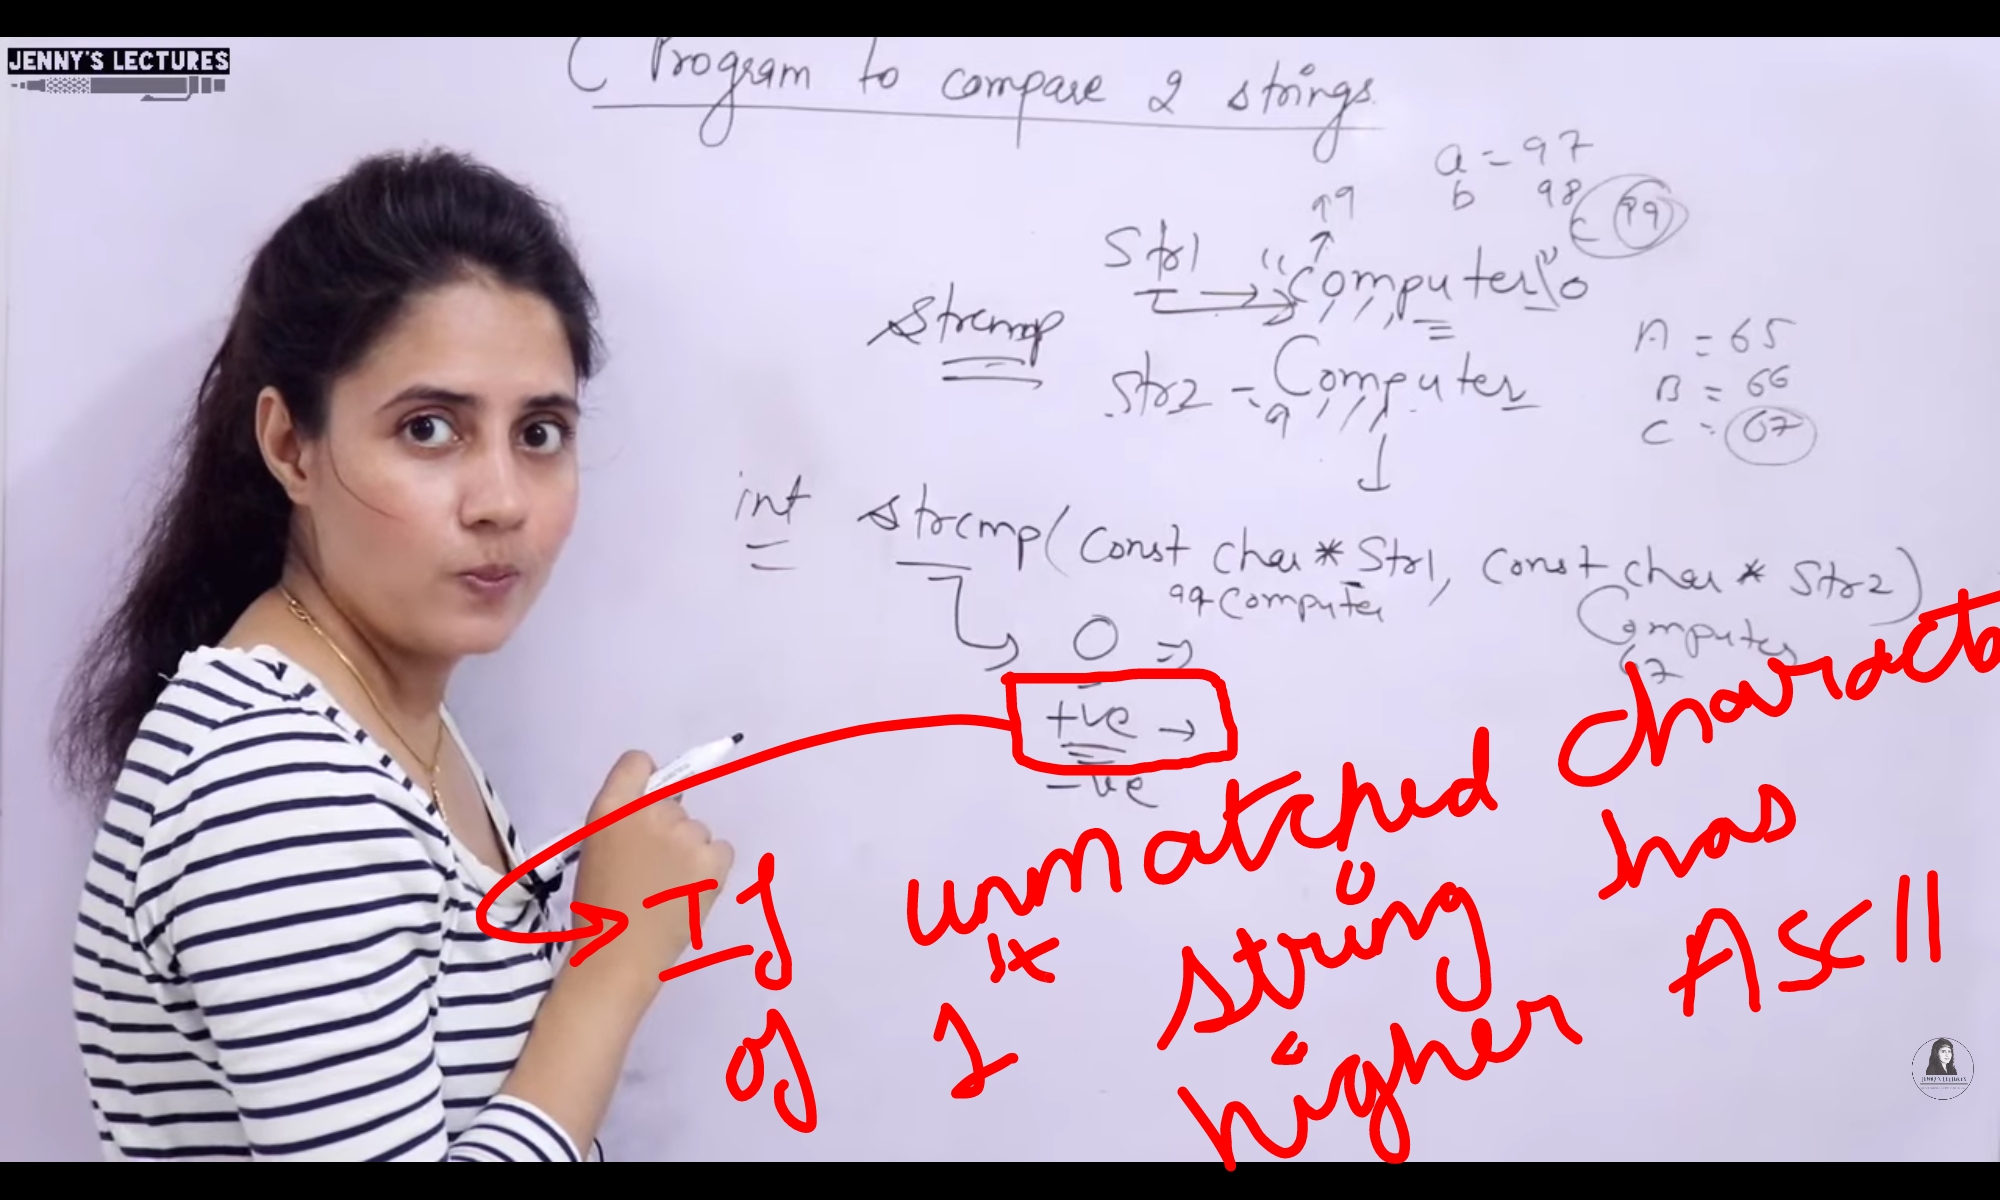 JENNY'S LECTURES
C Program to compare 2 strings.
a = 97
b 98
c 99
99
Str1 "computer\0"
strcmp
Str2 - Computer
A = 65
B = 66
C = 67
int strcmp(const char * Str1, const char * Str2)
99 computer
Computer
67
0 ⇒
+ve →
-ve
If unmatched characte
of 1st string has
higher ASCII
JENNY'S LECTURES